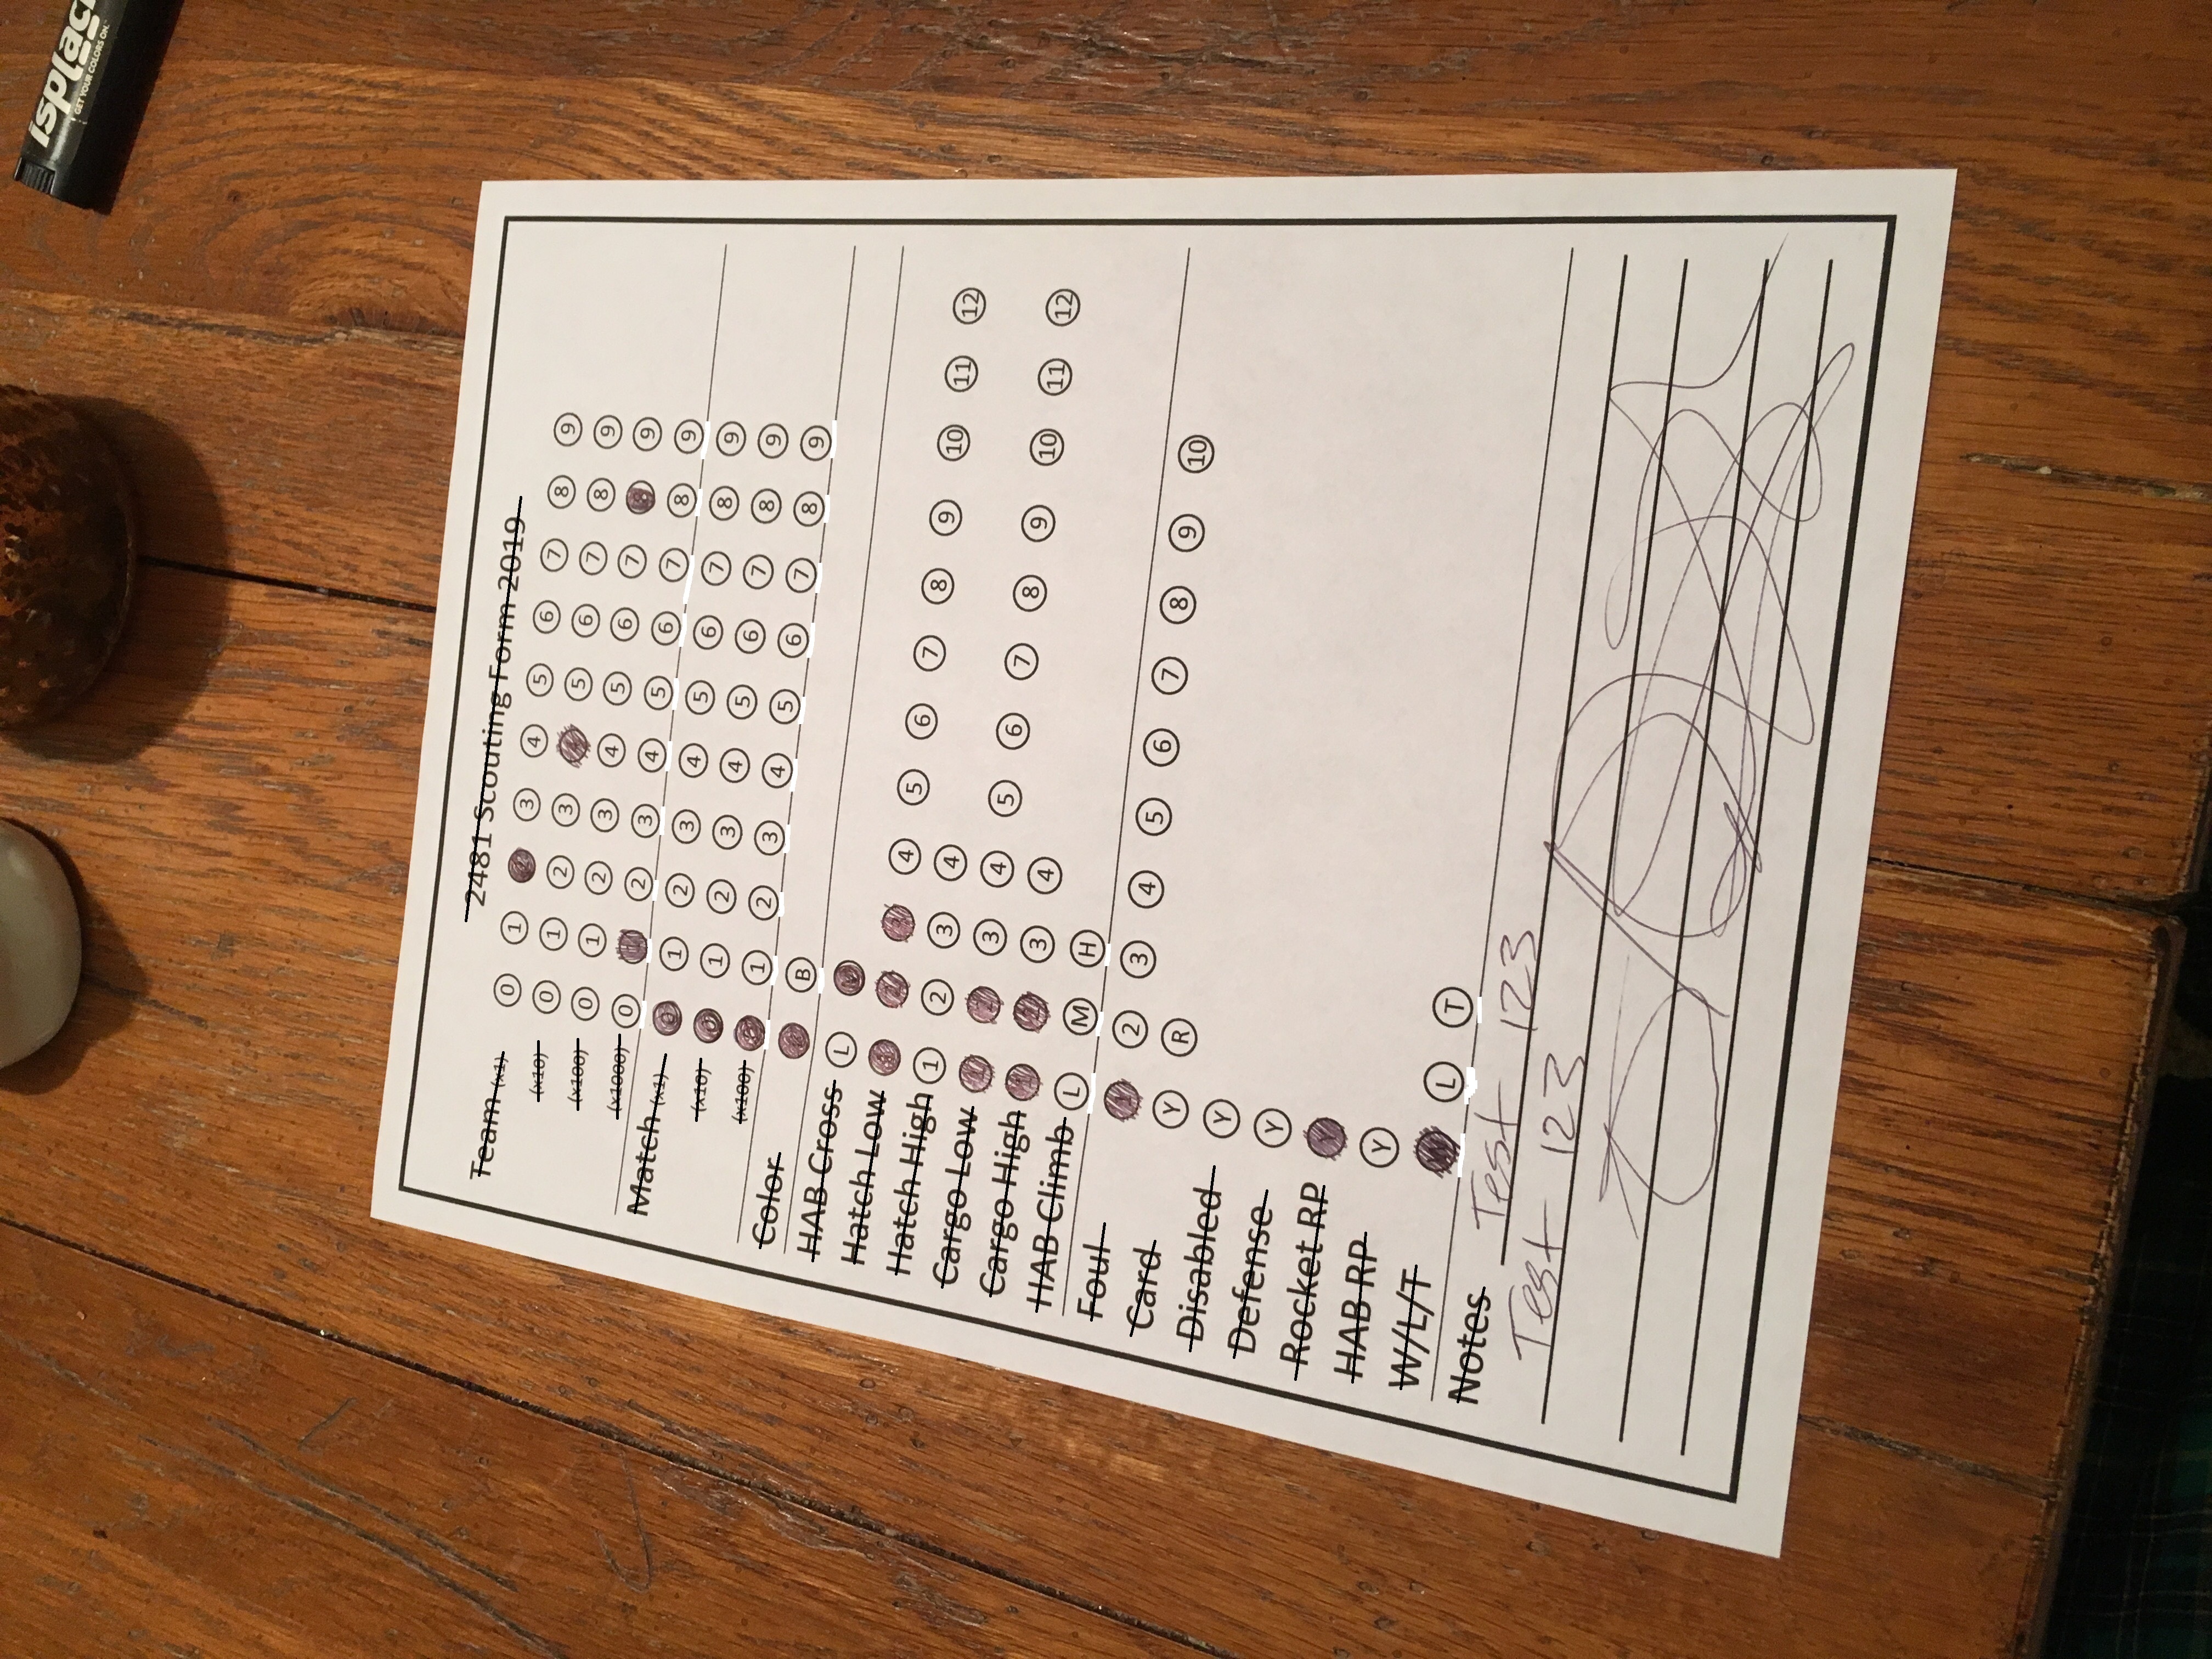 isplack
GET YOUR COLORS ON.
2481 Scouting Form 2019
Team (x1) 0 1 3 4 5 6 7 8 9
(x10) 0 1 2 3 5 6 7 8 9
(x100) 0 1 2 3 4 5 6 7 8 9
(x1000) 0 2 3 4 5 6 7 8 9
Match (x1) 0 1 2 3 4 5 6 7 8 9
(x10) 0 1 2 3 4 5 6 7 8 9
(x100) 0 1 2 3 4 5 6 7 8 9
Color B
HAB Cross L
Hatch Low 4 5 6 7 8 9 10 11 12
Hatch High 1 2 3 4
Cargo Low 3 4 5 6 7 8 9 10 11 12
Cargo High 3 4
HAB Climb L M H
Foul 2 3 4 5 6 7 8 9 10
Card Y R
Disabled Y
Defense Y
Rocket RP Y
HAB RP Y
W/L/T L T
Notes Test 123
Test 123